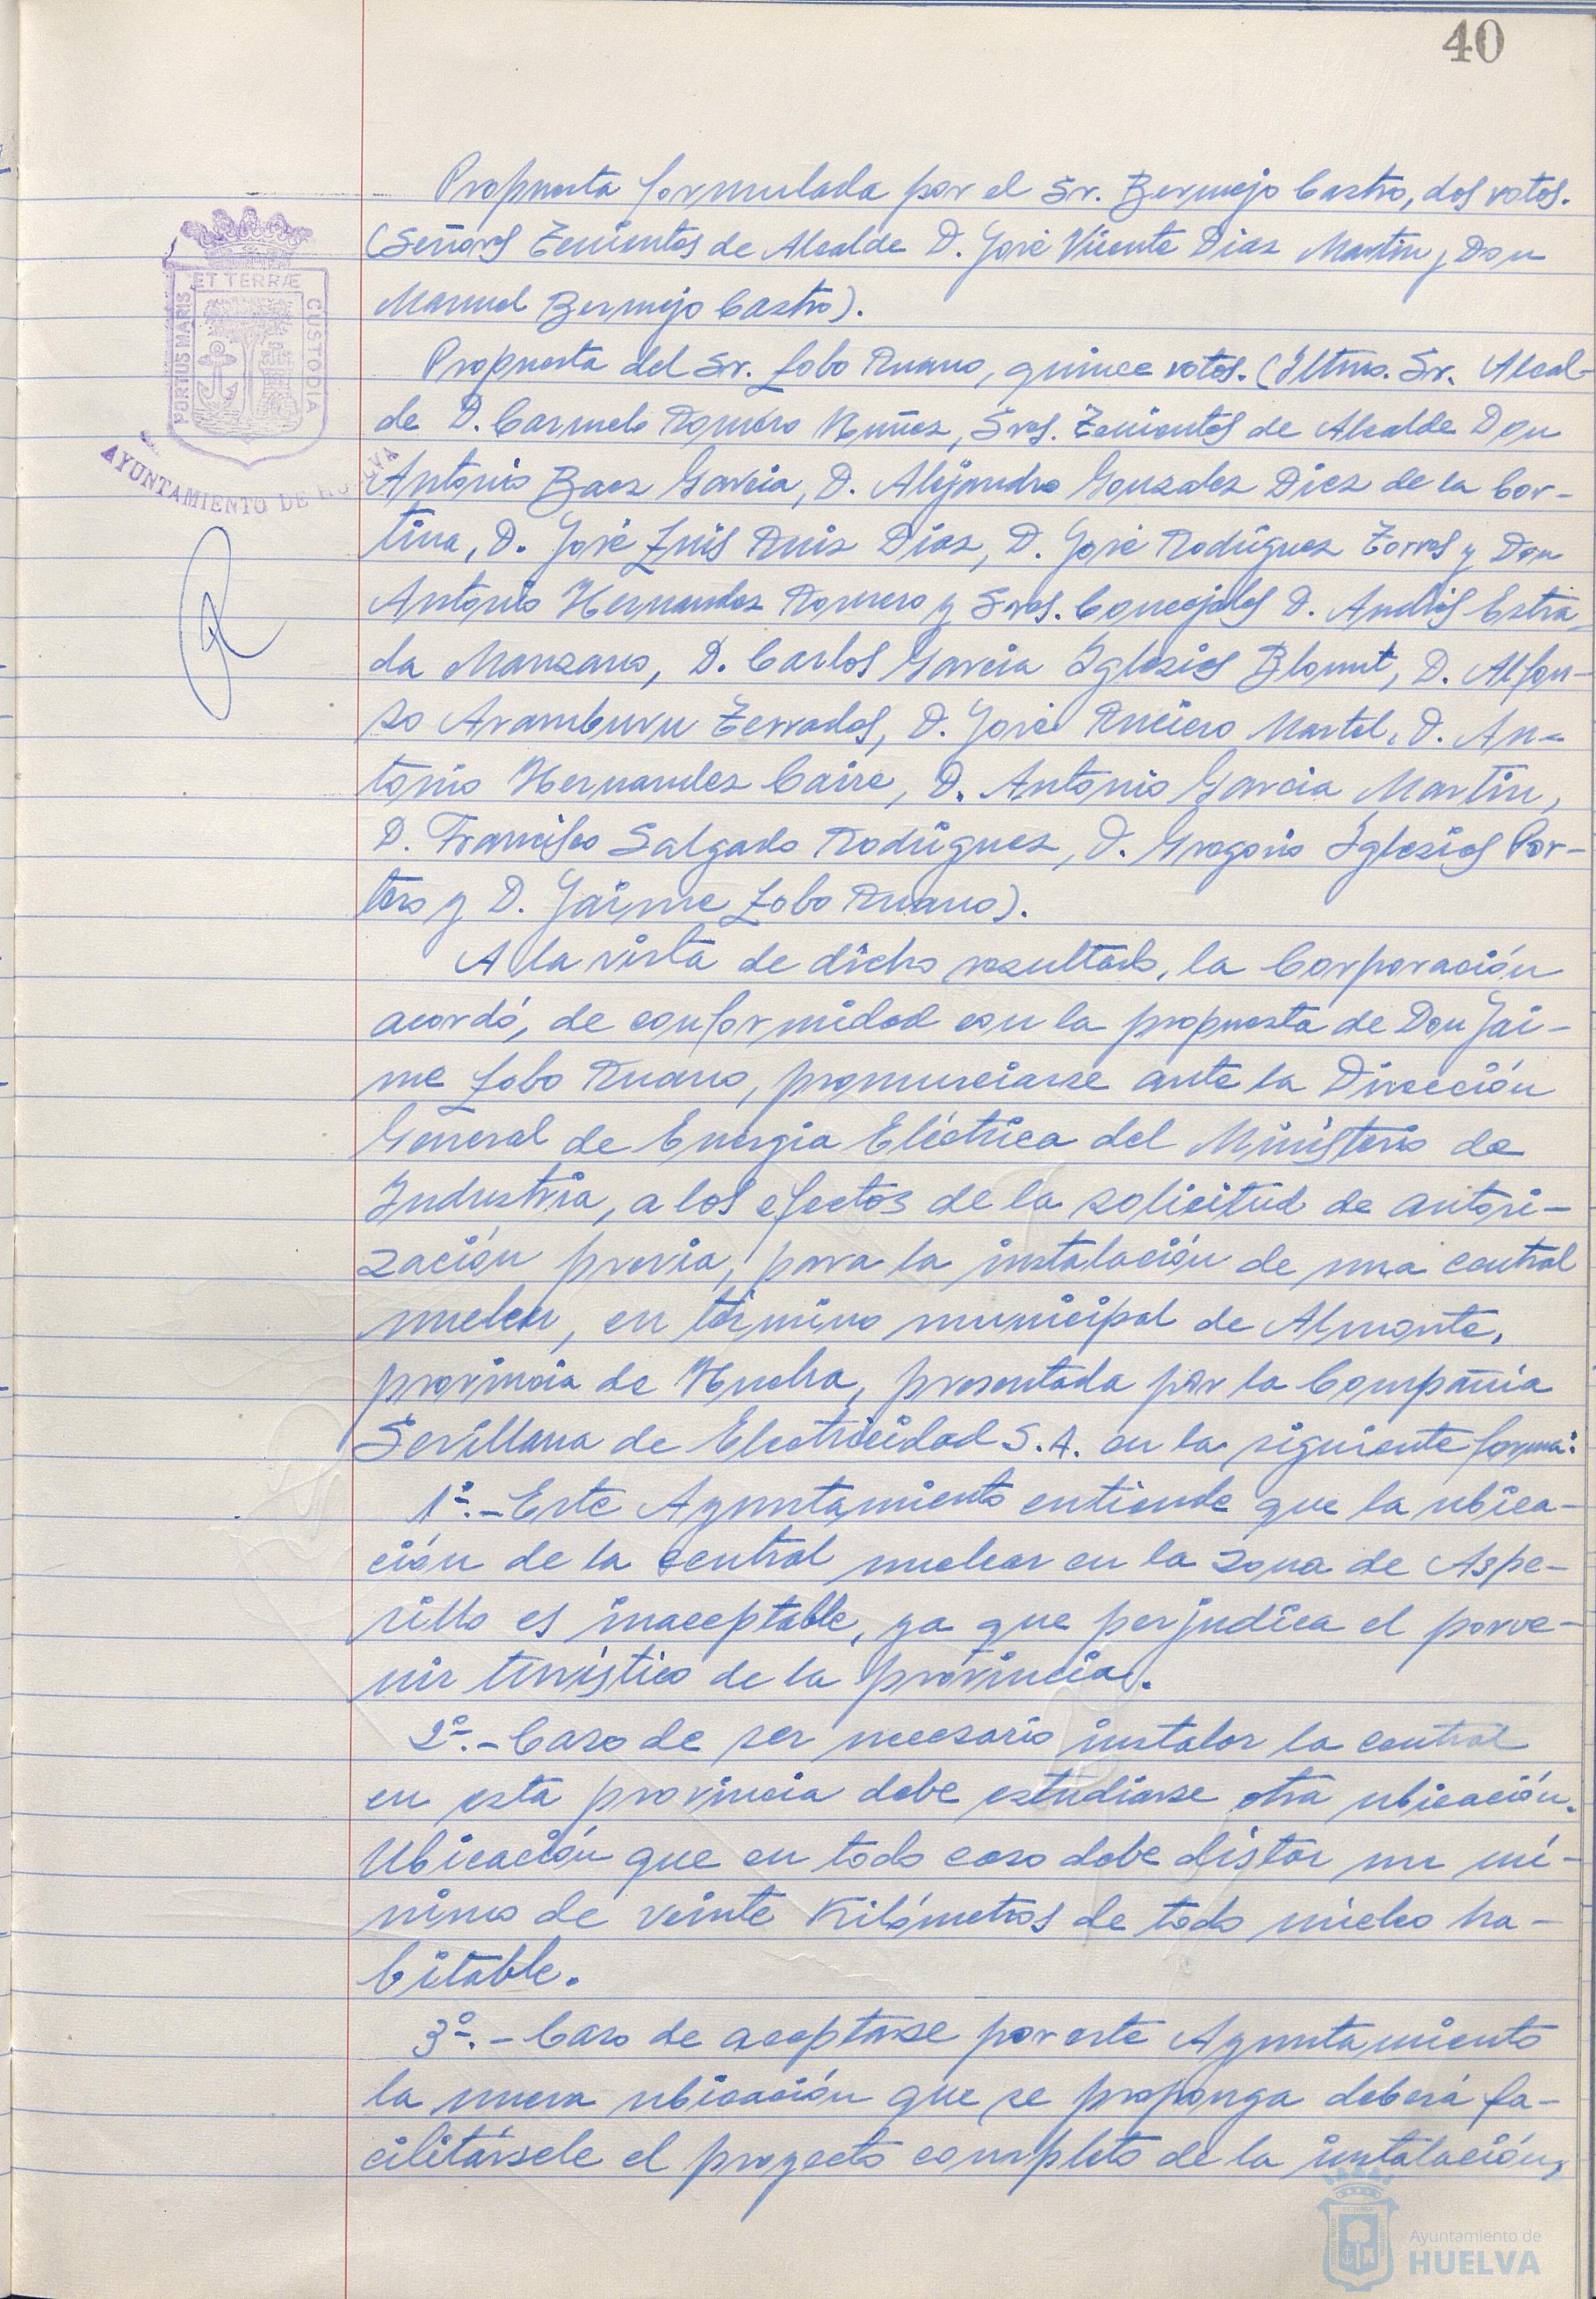 40
Propuesta formulada por el Sr. Bermejo Castro, dos votos.
(Señores Tenientes de Alcalde D. José Vicente Diaz Martin y Don
Manuel Bermejo Castro).
Propuesta del Sr. Lobo Ruano, quince votos. (Iltmo. Sr. Alcal-
de D. Carmelo Romero Nuñez, Sres. Tenientes de Alcalde Don
Antonio Baez Garcia, D. Alejandro Gonzalez Diez de la Cor-
tina, D. José Luis Ruiz Díaz, D. José Rodríguez Torres y Don
Antonio Hernandez Romero y Sres. Concejales D. Andrés Estra
da Manzano, D. Carlos Garcia Iglesias Blount, D. Alfon-
so Aramburu Terrados, D. José Ruciero Martel, D. An-
tonio Hernandez Caire, D. Antonio Garcia Martin,
D. Francisco Salgado Rodríguez, D. Gregorio Iglesias Por-
tero y D. Jaime Lobo Ruano).
A la vista de dicho resultado, la Corporación
acordó, de conformidad con la propuesta de Don Jai-
me Lobo Ruano, pronunciarse ante la Dirección
General de Energia Eléctrica del Ministerio de
Industria, a los efectos de la solicitud de autori-
zación previa, para la instalación de una central
nuclear, en término municipal de Almonte,
provincia de Huelva, presentada por la Compañia
Sevillana de Electricidad S.A. en la siguiente forma:
1º.- Este Ayuntamiento entiende que la ubica-
ción de la central nuclear en la zona de Aspe-
rillo es inaceptable, ya que perjudica el porve-
nir turístico de la provincia.
2º.- Caso de ser necesario instalar la central
en esta provincia debe estudiarse otra ubicación.
Ubicación que en todo caso debe distar un mí-
nimo de veinte Kilómetros de todo núcleo ha-
bitable.
3º.- Caso de aceptarse por este Ayuntamiento
la nueva ubicación que se proponga deberá fa-
cilitársele el proyecto completo de la instalación,
PORTUS MARIS
ET TERRÆ
CUSTODIA
AYUNTAMIENTO DE HUELVA
Ayuntamiento de
HUELVA